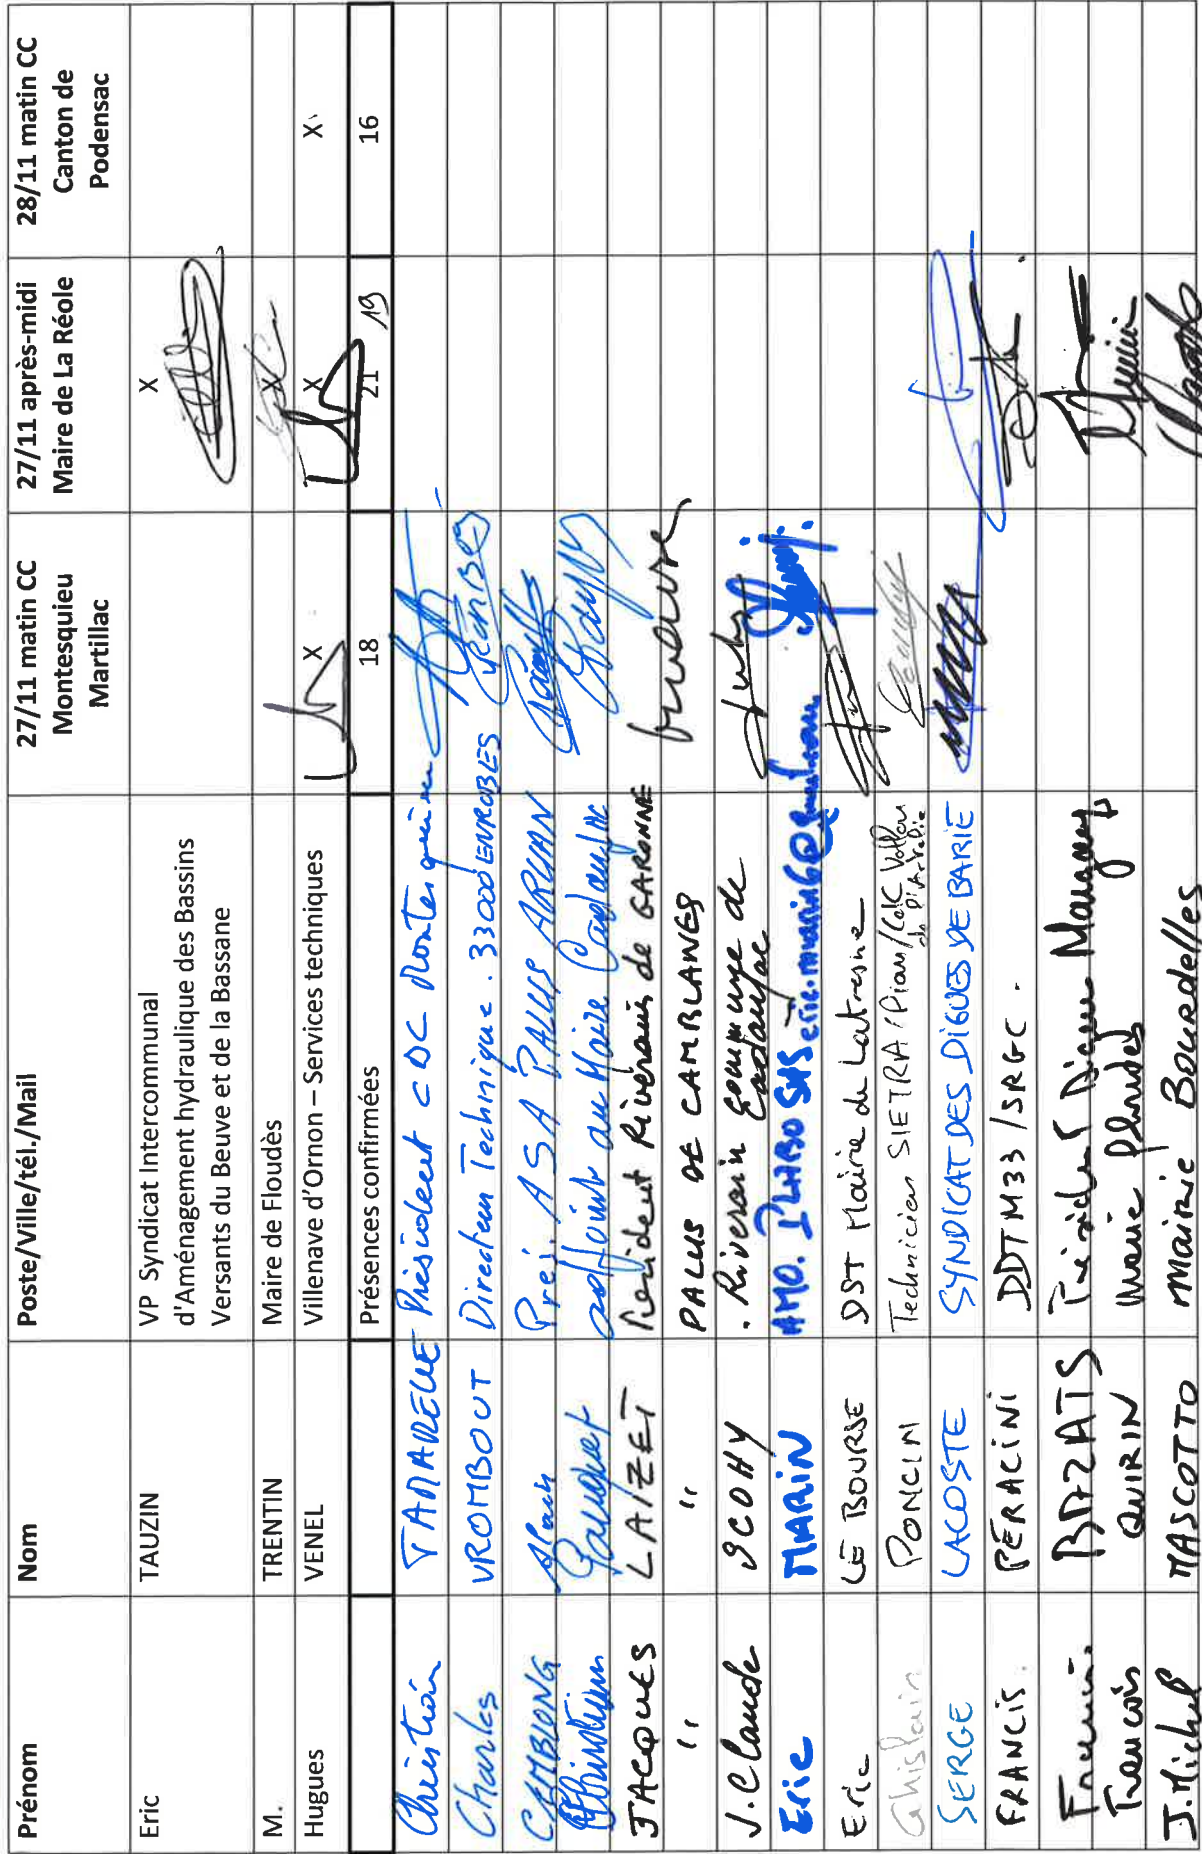 Prénom Nom Poste/Ville/tél./Mail 27/11 matin CC Montesquieu Martillac 27/11 après-midi Maire de La Réole 28/11 matin CC Canton de Podensac
Eric TAUZIN VP Syndicat Intercommunal X
d'Aménagement hydraulique des Bassins
Versants du Beuve et de la Bassane
M. TRENTIN Maire de Floudès X
Hugues VENEL Villenave d'Ornon – Services techniques X X X
Présences confirmées 18 21 19 16
Christian TAMARELLE Président CDC Montesquieu
Charles VROMBOUT Directeur Technique . 33000 ENROBES
CAMBLONG Alain Pres. ASA PALUS ARCINS
Christian Gauquet adjoint au Maire Cadaujac
JACQUES LAIZET President Riverains de GARONNE
" " PALUS DE CAMBLANES
J. Claude ICOHY . Riverain commune de Cadaujac
Eric MARIN AMO.
Eric LE BOURSE DST Mairie de Latresne
Ghislain PONCIN Technicien SIETRA
SERGE LACOSTE SYNDICAT DES DIGUES DE BARIE
FRANCIS. PERACINI DDTM33/SRGC.
BAZZATS
Francois QUIRIN Maire
J. Michel MASCOTTO Mairie Bourdelles